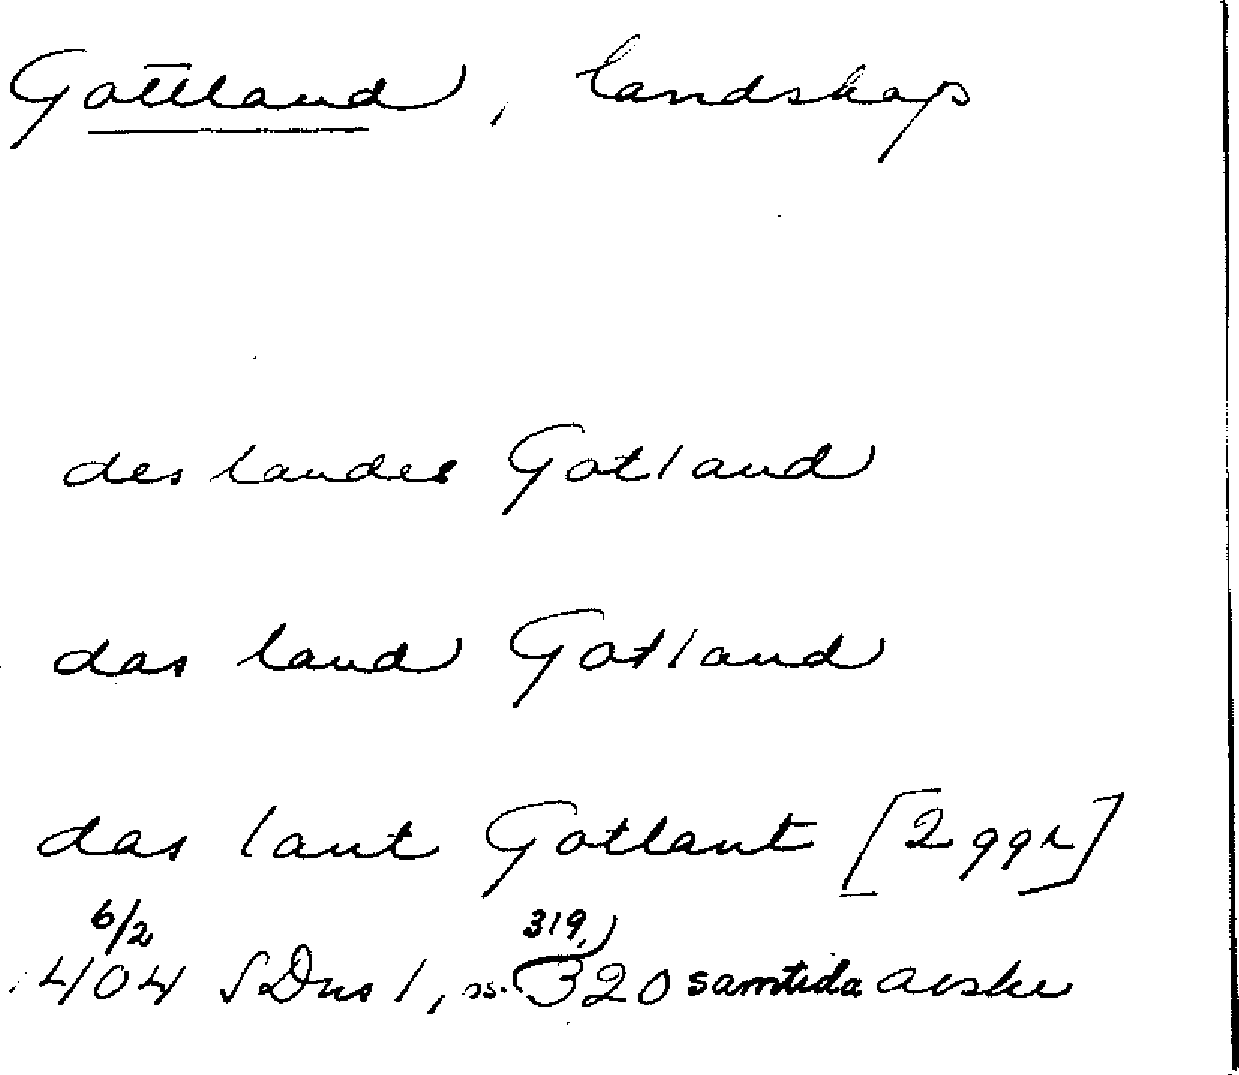 Gottland, landskap
des landes Gotland
das land Gotland
das lant Gotlant [2 ggr]
6/2 319,
1404 SDns 1, ss. 320 samtida avskr